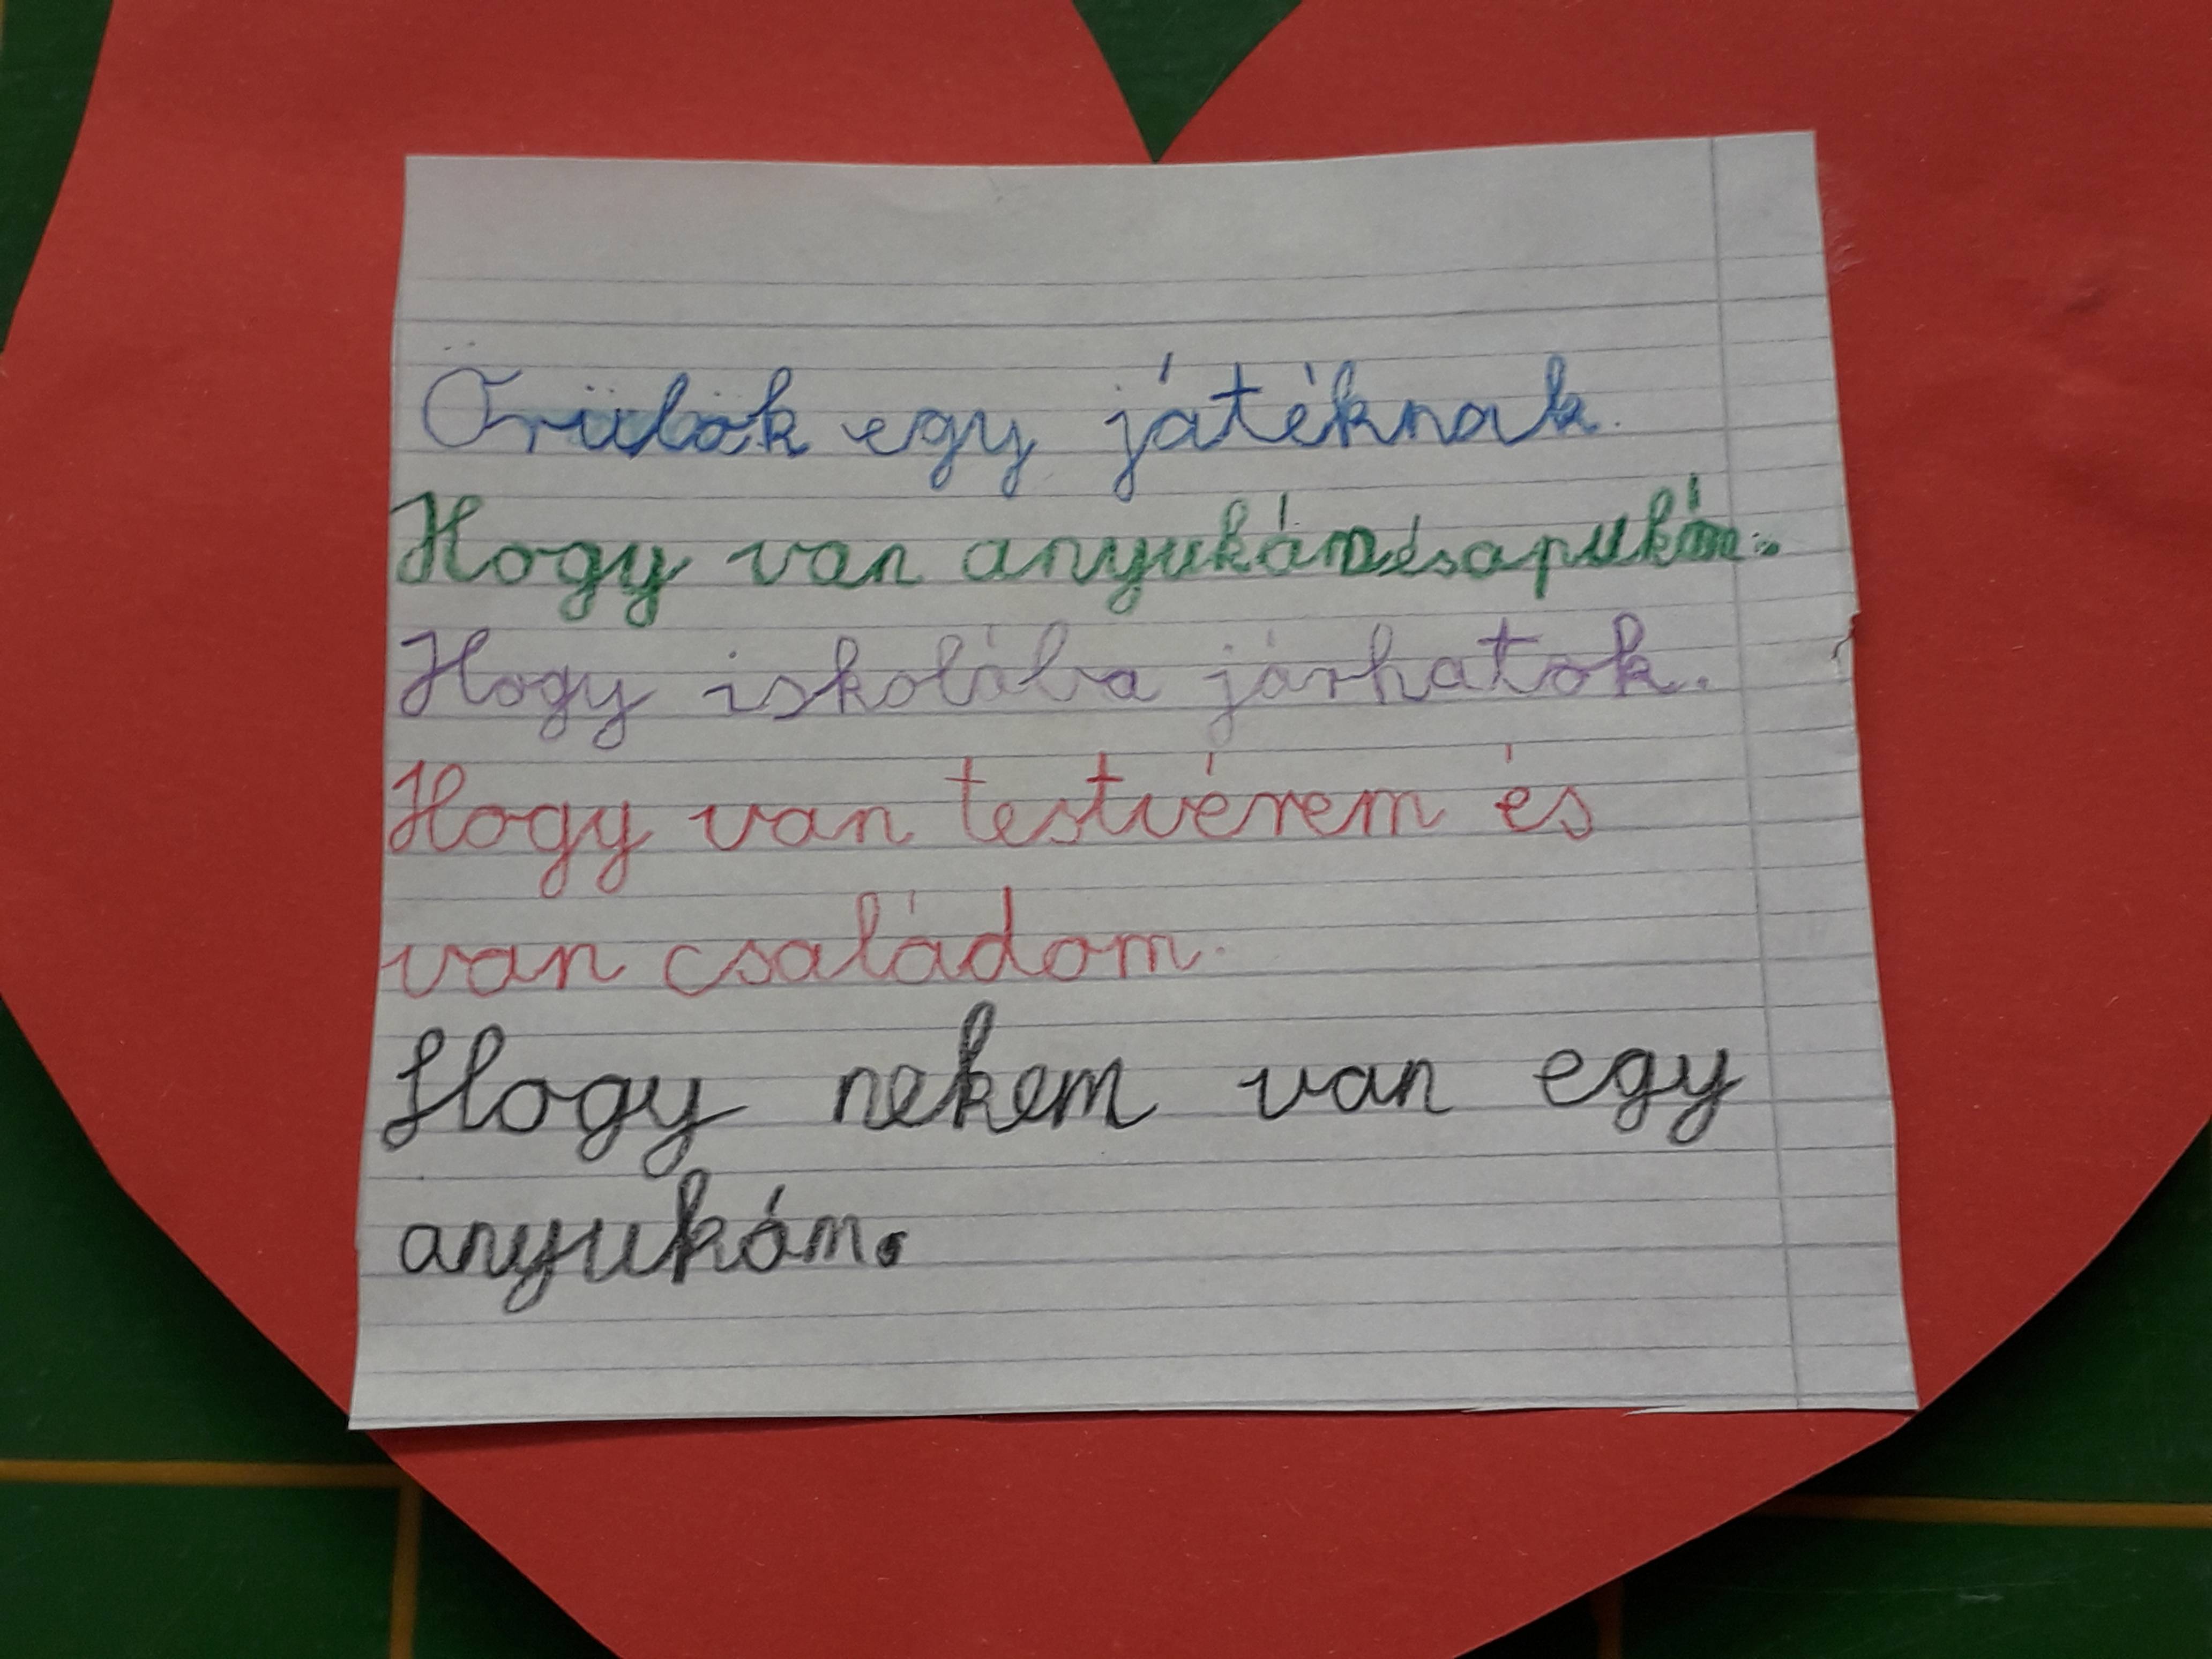 Örülök egy játéknak.
Hogy van anyukámésapukám.
Hogy iskolába járhatok.
Hogy van testvérem és
van családom.
Hogy nekem van egy
anyukám.